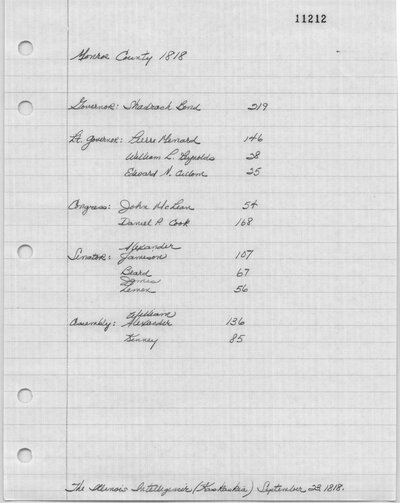 11212
Monroe County 1818
Governor: Shadrach Bond 219
Lt. Governor: Pierre Menard 146
William L. Reynolds 28
Edward N. Cullom 25
Congress: John McLean 54
Daniel P. Cook 168
Alexander
Senator: Jameson 107
Beard 67
James
Lemen 56
William
Assembly: Alexander 136
Kinney 85
The Illinois Intelligencer (Kaskaskia) September 23, 1818.